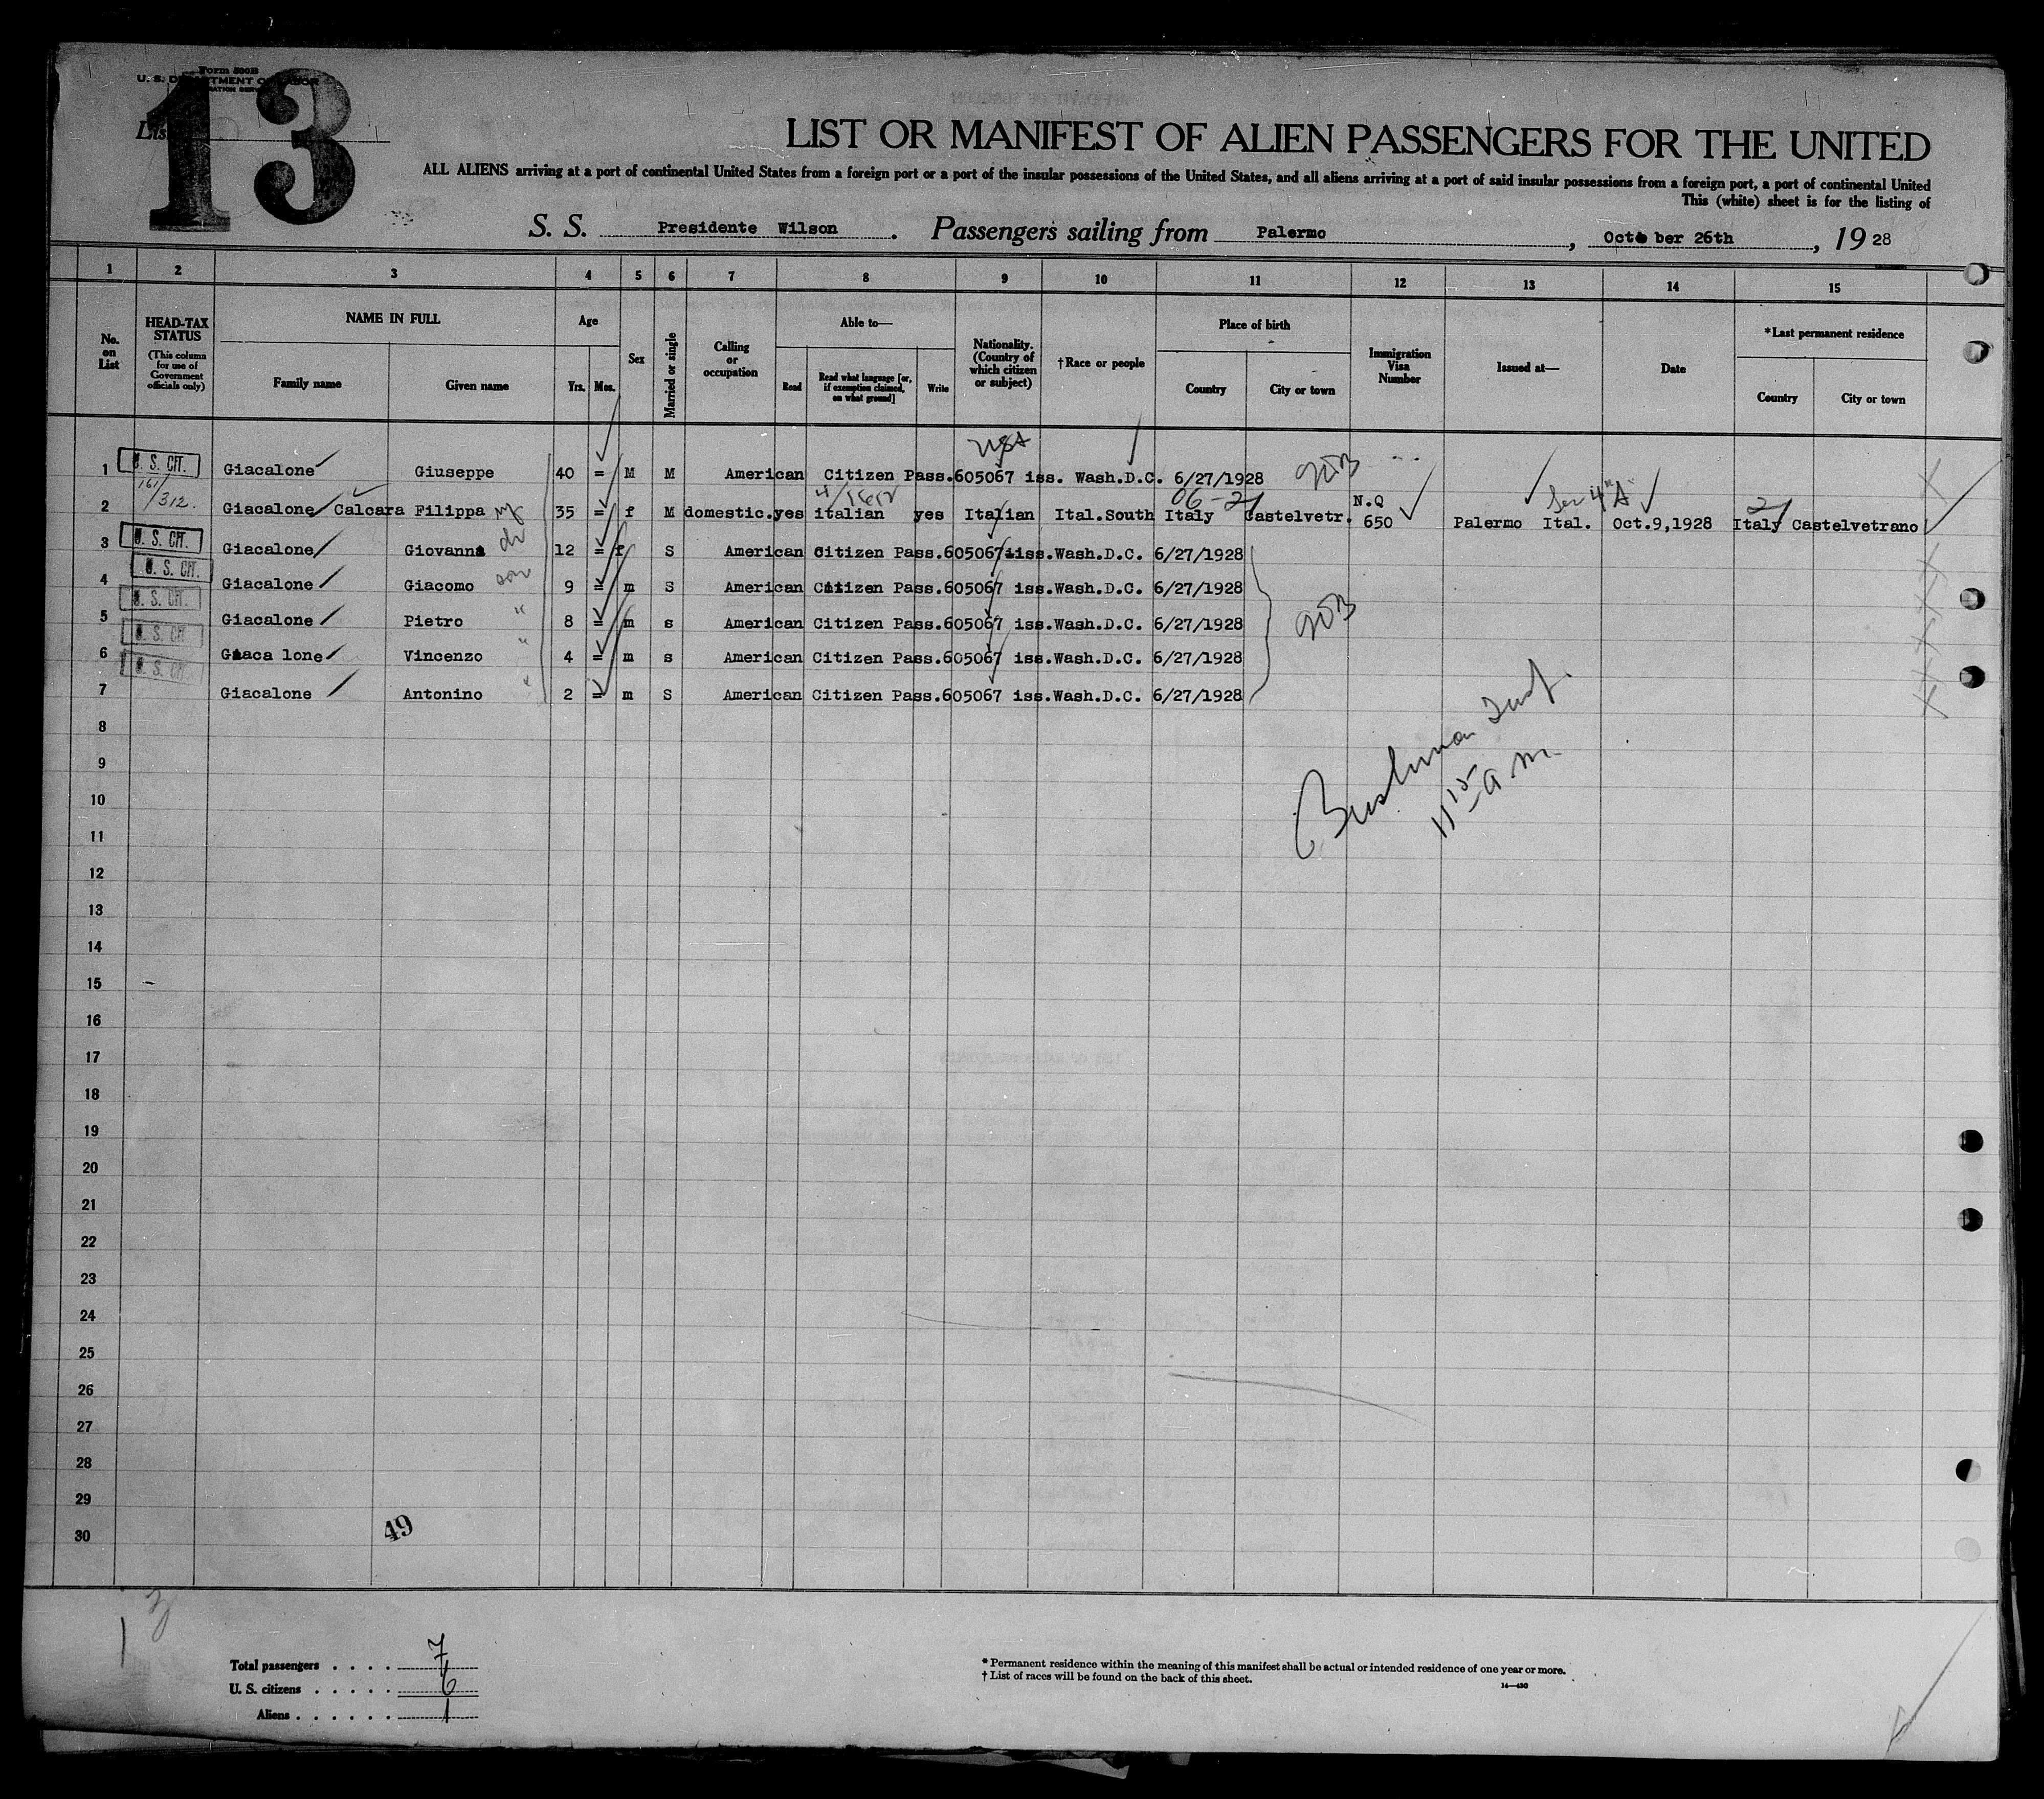 Form 500B
U. S. DEPARTMENT OF LABOR
IMMIGRATION SERVICE
List
13
LIST OR MANIFEST OF ALIEN PASSENGERS FOR THE UNITED
ALL ALIENS arriving at a port of continental United States from a foreign port or a port of the insular possessions of the United States, and all aliens arriving at a port of said insular possessions from a foreign port, a port of continental United
This (white) sheet is for the listing of
S. S. Presidente Wilson. Passengers sailing from Palermo, October 26th, 1928
1 2 3 4 5 6 7 8 9 10 11 12 13 14 15
No. on List
HEAD-TAX STATUS
(This column for use of Government officials only)
NAME IN FULL
Family name Given name
Age
Yrs. Mos.
Sex
Married or single
Calling or occupation
Able to—
Read Read what language [or, if exemption claimed, on what ground] Write
Nationality. (Country of which citizen or subject)
†Race or people
Place of birth
Country City or town
Immigration Visa Number
Issued at—
Date
*Last permanent residence
Country City or town
USA
1 U. S. CIT. Giacalone Giuseppe 40 = M M American Citizen Pass.605067 iss. Wash.D.C. 6/27/1928
161/312. 06-21 N.Q Ser 4 "A"
2 Giacalone Calcara Filippa wf 35 = f M domestic. yes italian yes Italian Ital.South Italy Castelvetr. 650 Palermo Ital. Oct.9,1928 Italy Castelvetrano
3 U. S. CIT. Giacalone Giovanna 12 = f S American Citizen Pass.605067 iss.Wash.D.C. 6/27/1928
4 U. S. CIT. Giacalone Giacomo son 9 = m S American Citizen Pass.605067 iss.Wash.D.C. 6/27/1928
5 U. S. CIT. Giacalone Pietro " 8 = m s American Citizen Pass.605067 iss.Wash.D.C. 6/27/1928
6 U. S. CIT. Giaca lone Vincenzo " 4 = m s American Citizen Pass.605067 iss.Wash.D.C. 6/27/1928
7 U. S. CIT. Giacalone Antonino " 2 = m S American Citizen Pass.605067 iss.Wash.D.C. 6/27/1928
8
9
10
11
12
13
14
15
16
17
18
19
20
21
22
23
24
25
26
27
28
29
30
Bushman
11 15 a m.
49
Total passengers . . . . 7
U. S. citizens . . . . . 6
Aliens . . . . . . 1
* Permanent residence within the meaning of this manifest shall be actual or intended residence of one year or more.
† List of races will be found on the back of this sheet.
14—430